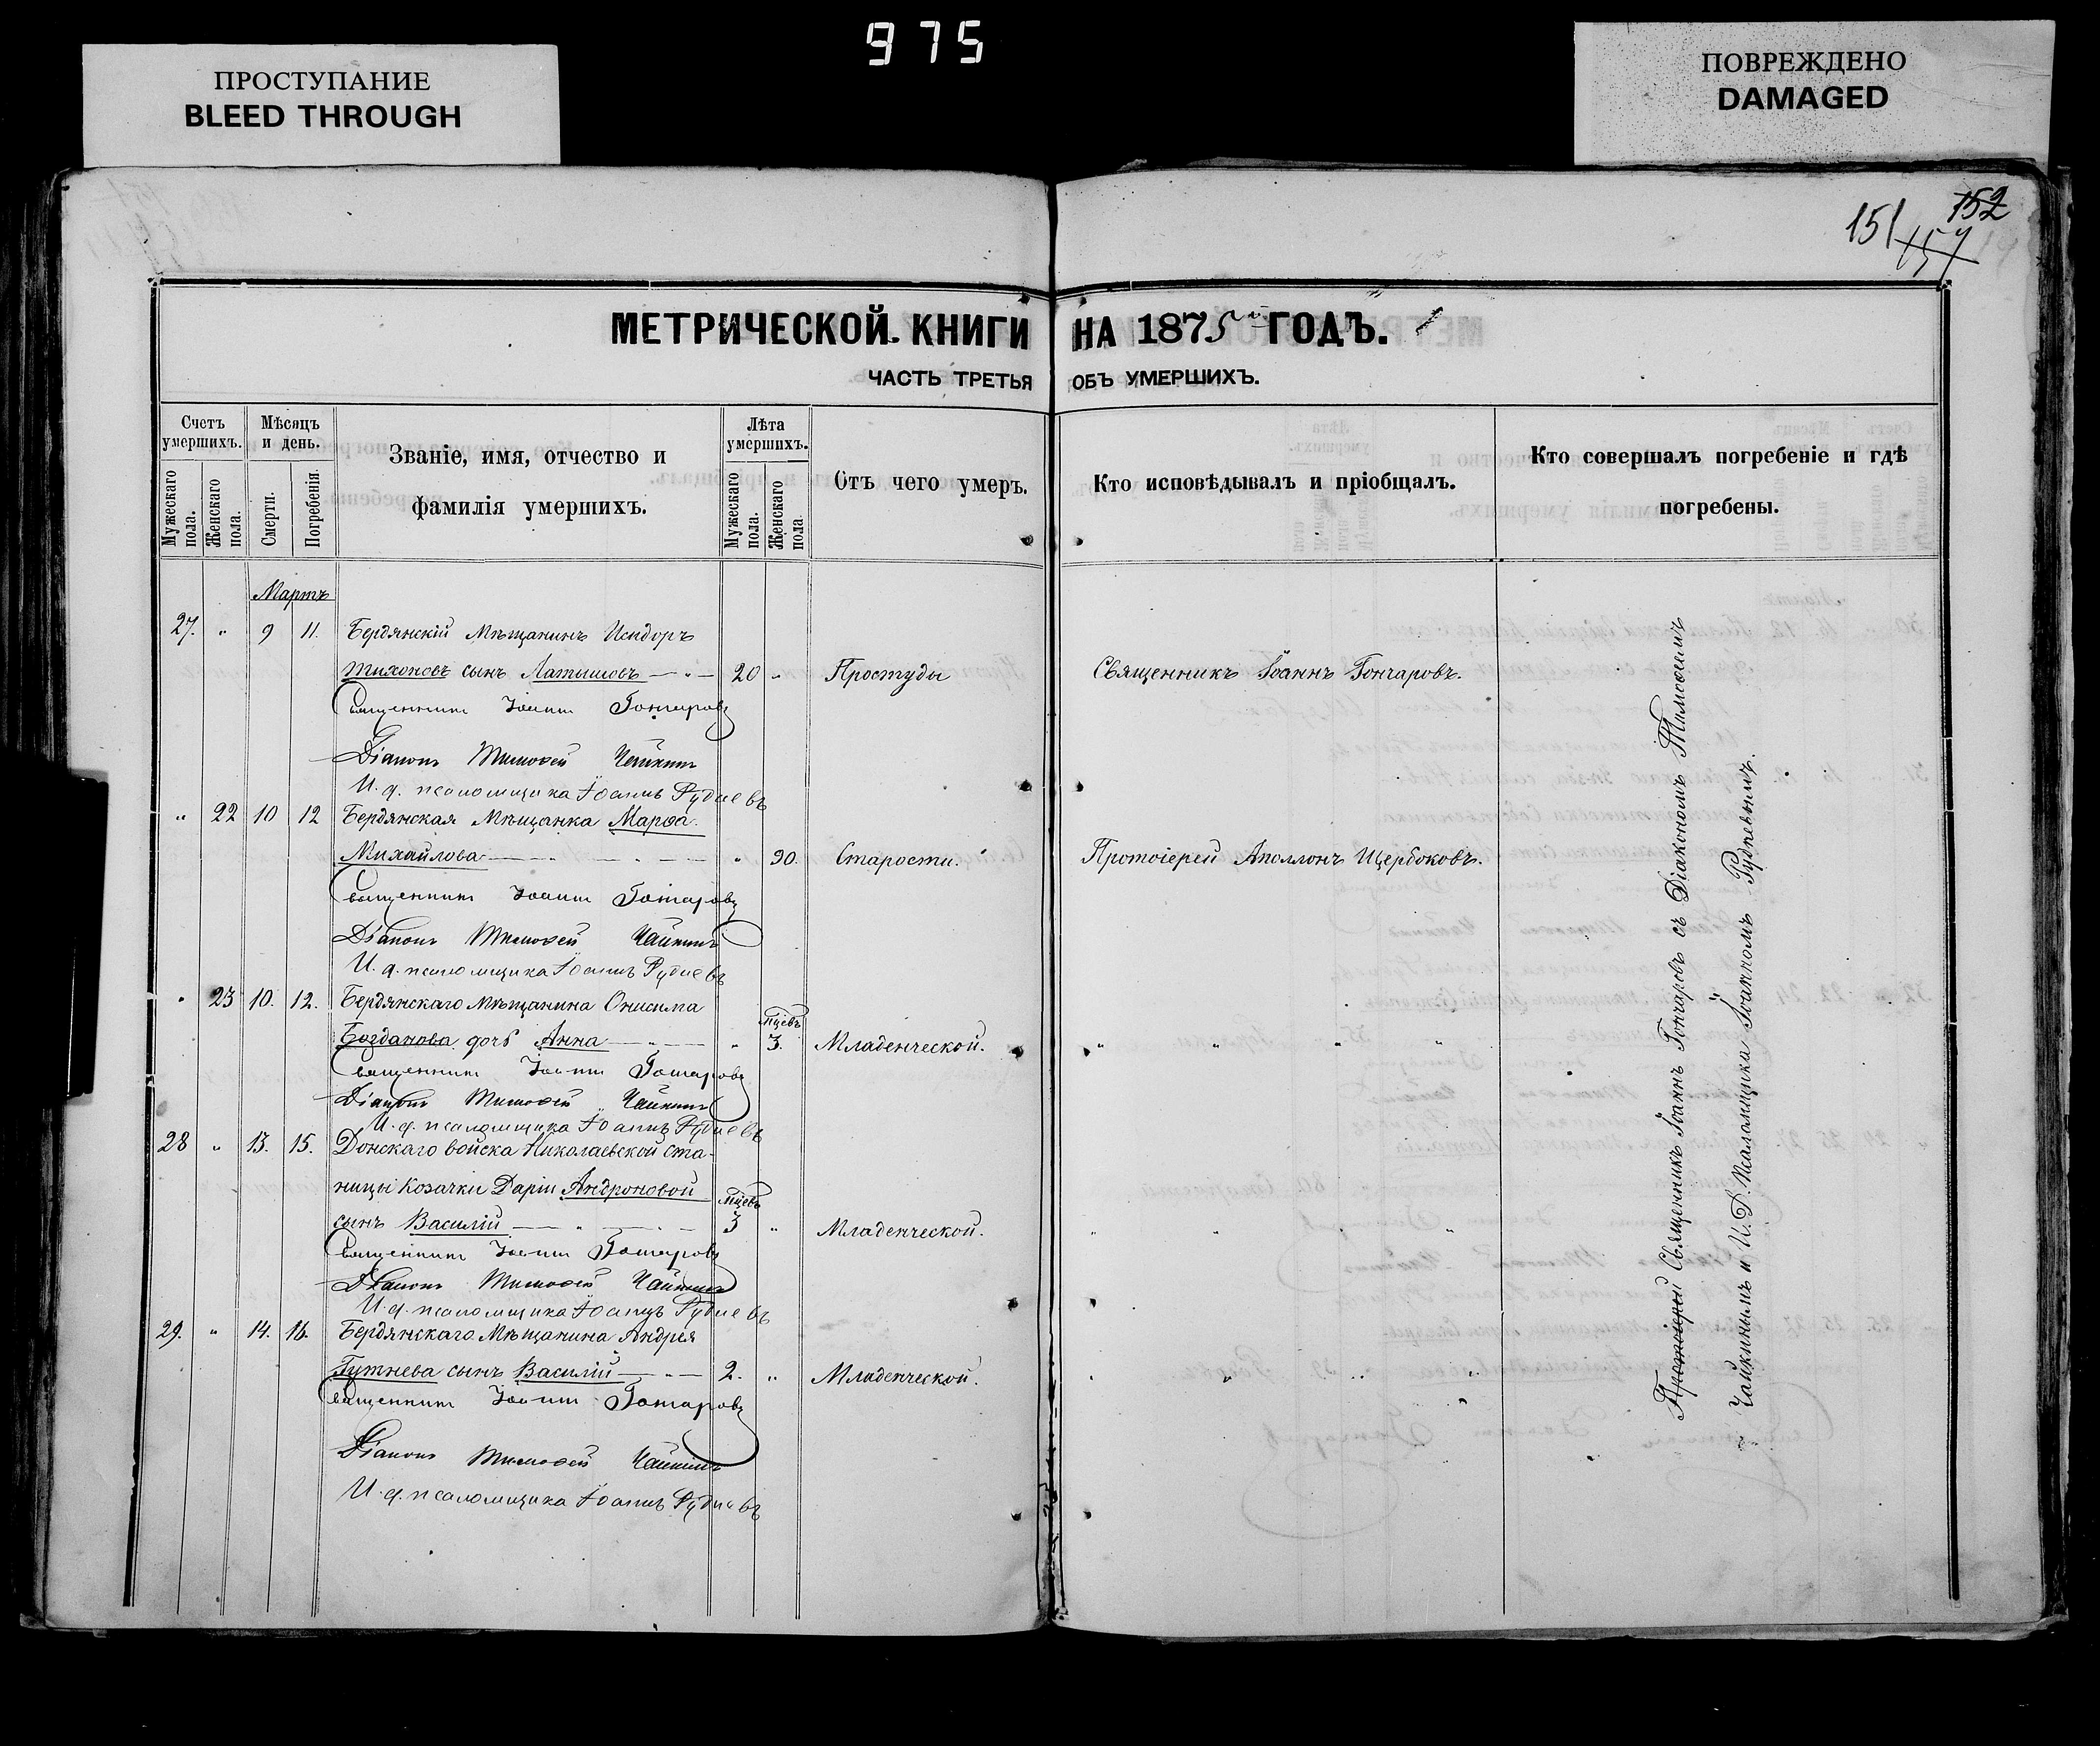 975
ПРОСТУПАНИЕ
BLEED THROUGH
ПОВРЕЖДЕНО
DAMAGED
152
151
МЕТРИЧЕСКОЙ КНИГИ НА 1875й ГОДЪ.
ЧАСТЬ ТРЕТЬЯ ОБЪ УМЕРШИХЪ.
Счетъ умершихъ.
Мужескаго пола.
Женскаго пола.
Мѣсяцъ и день.
Смерти.
Погребенія.
Званіе, имя, отчество и
фамилія умершихъ.
Лѣта умершихъ.
Мужескаго пола.
Женскаго пола
Отъ чего умеръ.
Кто исповѣдывалъ и пріобщалъ.
Кто совершалъ погребеніе и гдѣ
погребены.
Мартъ
27. " 9 11. Бердянскій Мѣщанинъ Исидоръ
Тихоновъ сынъ Латышовъ — " — 20 " Простуды Священникъ Іоаннъ Гончаровъ.
Священникъ Іоаннъ Гончаровъ
Діаконъ Тимофей Чайкинъ
И. д. псаломщика Іоаннъ Рудневъ
" 22 10 12 Бердянская Мѣщанка Марѳа
Михайлова — " — " — " 90. Старости. Протоіерей Аполлонъ Щербоковъ.
Священникъ Іоаннъ Гончаровъ
Діаконъ Тимофей Чайкинъ
И. д. псаломщика Іоаннъ Рудневъ
" 23 10. 12. Бердянскаго Мѣщанина Онисима
Богданова дочь Анна — " — " мцевъ 3. Младенческой. " " " "
Священникъ Іоаннъ Гончаровъ
Діаконъ Тимофей Чайкинъ
И. д. псаломщика Іоаннъ Рудневъ
28 " 13. 15. Донскаго войска Николаевской ста-
ницы Козачки Даріи Андроновой
сынъ Василій — " — " — мцевъ 3 " Младенческой. " " " "
Священникъ Іоаннъ Гончаровъ
Діаконъ Тимофей Чайкинъ
И. д. псаломщика Іоаннъ Рудневъ
29. " 14. 16. Бердянскаго Мѣщанина Андрея
Гутнева сынъ Василій — " — 2. " Младенческой. " " " "
Священникъ Іоаннъ Гончаровъ
Діаконъ Тимофей Чайкинъ
И. д. псаломщика Іоаннъ Рудневъ
Протоіерей Священникъ Іоаннъ Гончаровъ съ Діакономъ Тимофеимъ
Чайкинымъ и И. Д. Псаламщика Іоанномъ Рудневымъ.